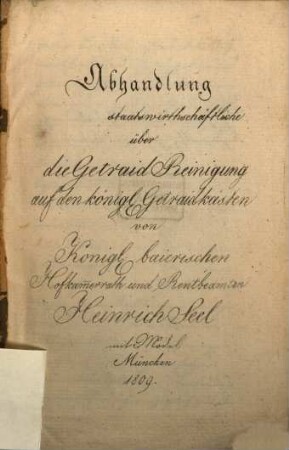 Abhandlung
staatswirthschäftliche
über
die Getraid Reinigung
auf den königl. Getraidkästen
von
Königl. baierischen
Hofkam̄errath und Rentbeamten
Heinrich Seel
mit Model
München
1809.